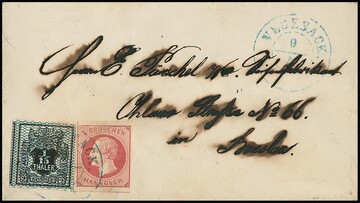 VEGESACK
9
Herrn E.
Ohlauer Straße No 66.
in Breslau
1
15
THALER
1 GROSCHEN
HANNOVER